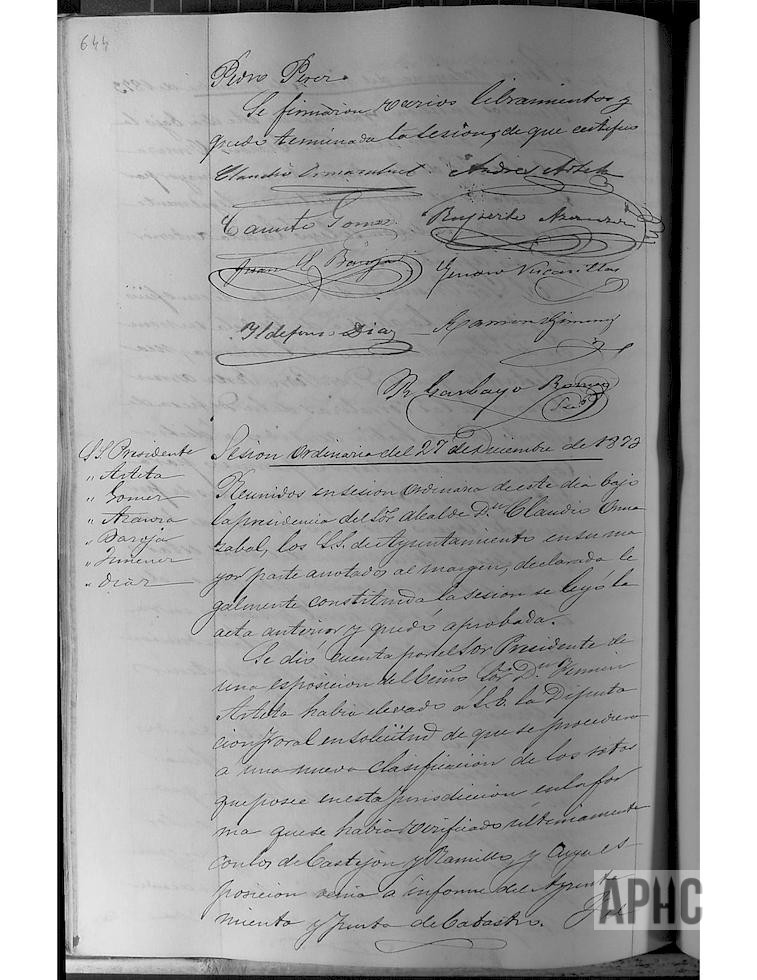 644
Pedro Perez.
Se firmaron varios libramientos y
quedó terminada la sesion, de que certifico
Claudio Andres Arteta
Canuto Gomez Ruperto Azanza
Juan Baroja Genaro Vicarillas
Yldefonso Diaz Ramon Gimenez
R Garbayo Ramon
Srio
Sesion Ordinaria del 27 de Diciembre de 1893
S.S. Presidente
" Arteta
" Gomez
" Azanza
" Baroja
" Jimenez
" Diaz
Reunidos en sesion ordinaria de este dia bajo
la presidencia del Sor Alcalde Dn Claudio Orma
zabal, los S.S. de Ayuntamiento en su ma
yor parte anotados al margen, declarada le
galmente constituida la sesión se leyó la
acta anterior y quedó aprobada.
Se dió cuenta por el Sor Presidente de
una esposicion del Sor Dn Fermin
Arteta habia elevado á S.E. la Diputa
cion foral en solicitud de que se procediera
a una nueva clasificacion de los sotos
que posee en esta jurisdiccion en la for
ma que se habia verificado últimamente
con los de Castejon y Ramillo, y cuya es
posicion venia á informe del Ayunta
miento y Junta de Catastro.
APHC